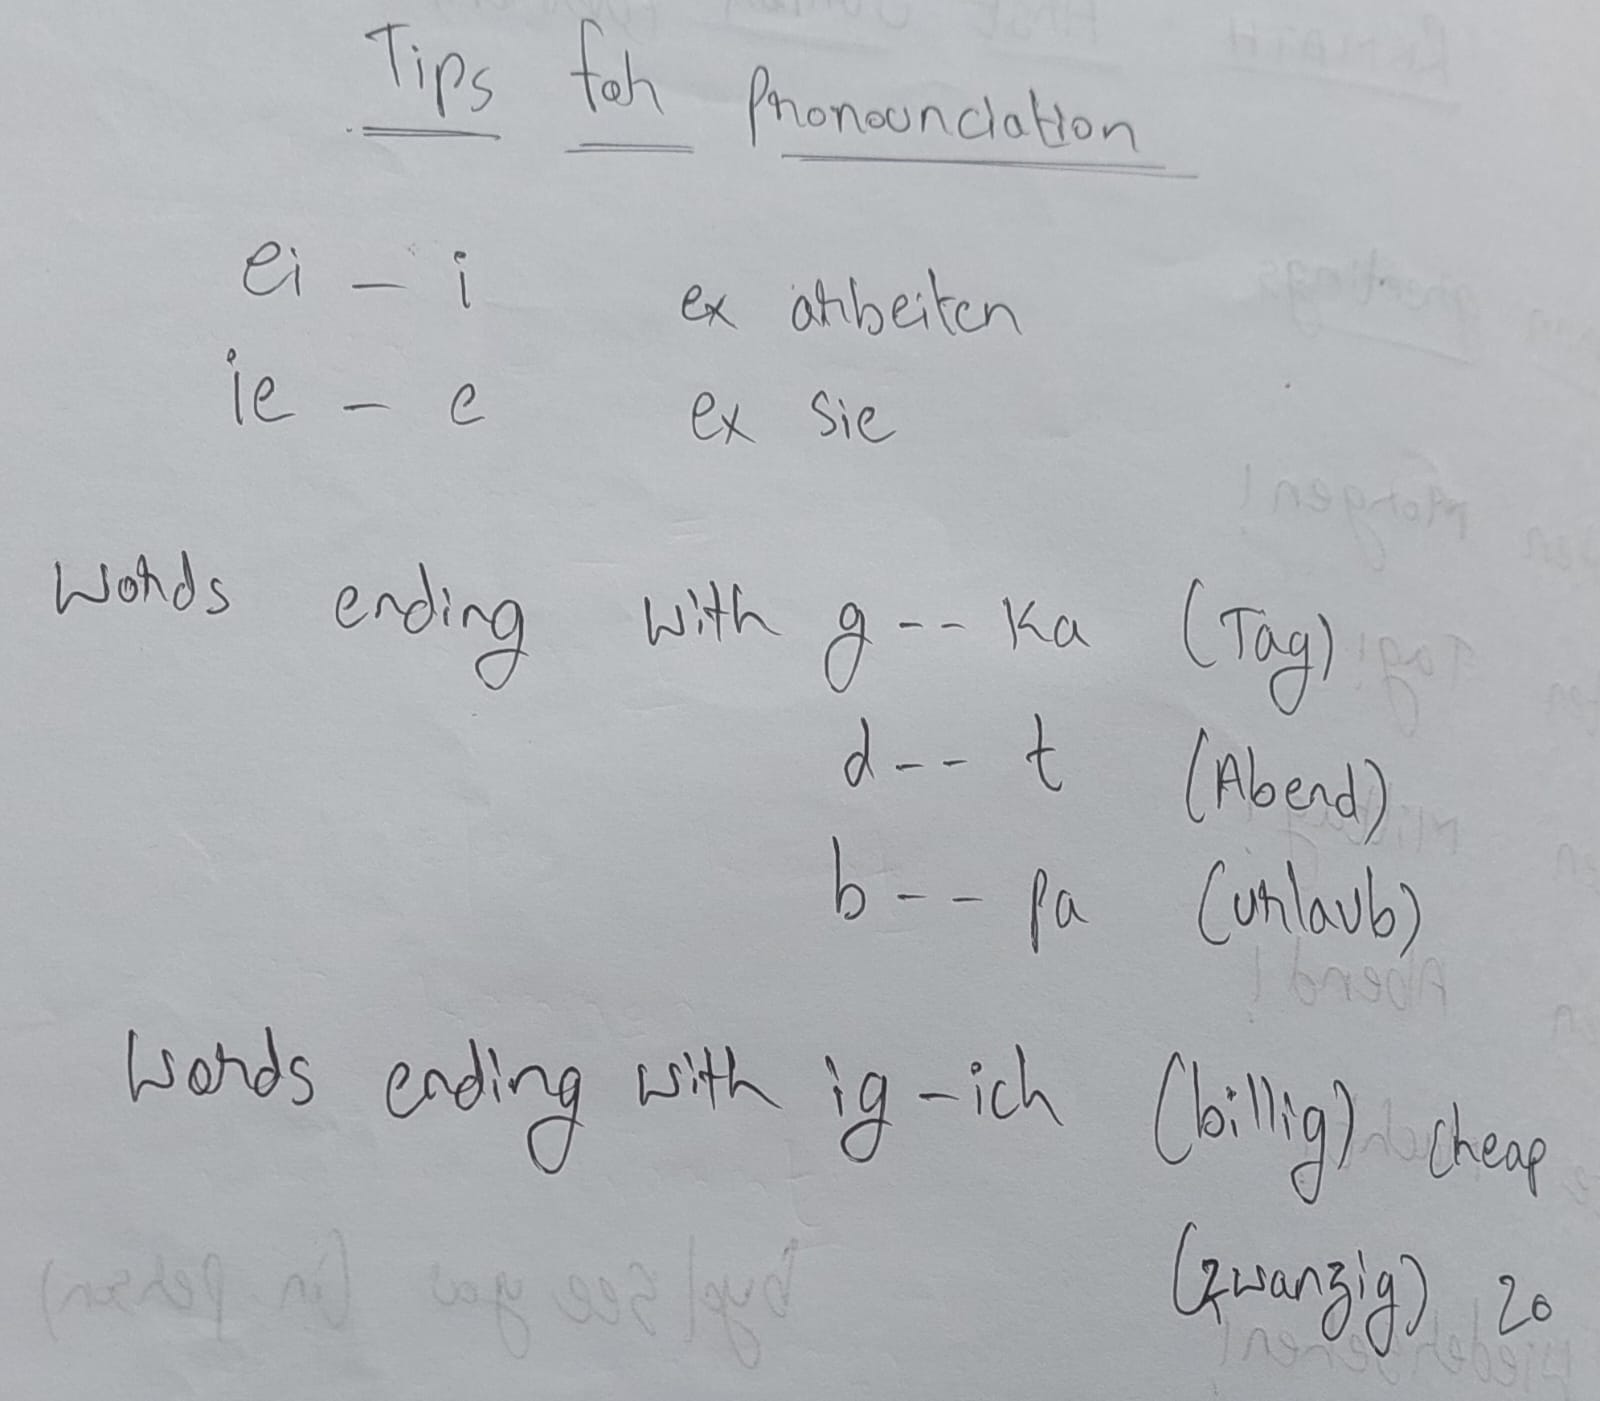 Tips for Pronounciation
ei - i ex arbeiten
ie - e ex sie
Words ending with g -- Ka (Tag)
d -- t (Abend)
b -- pa (urlaub)
Words ending with ig - ich (billig) cheap
(zwanzig) 20